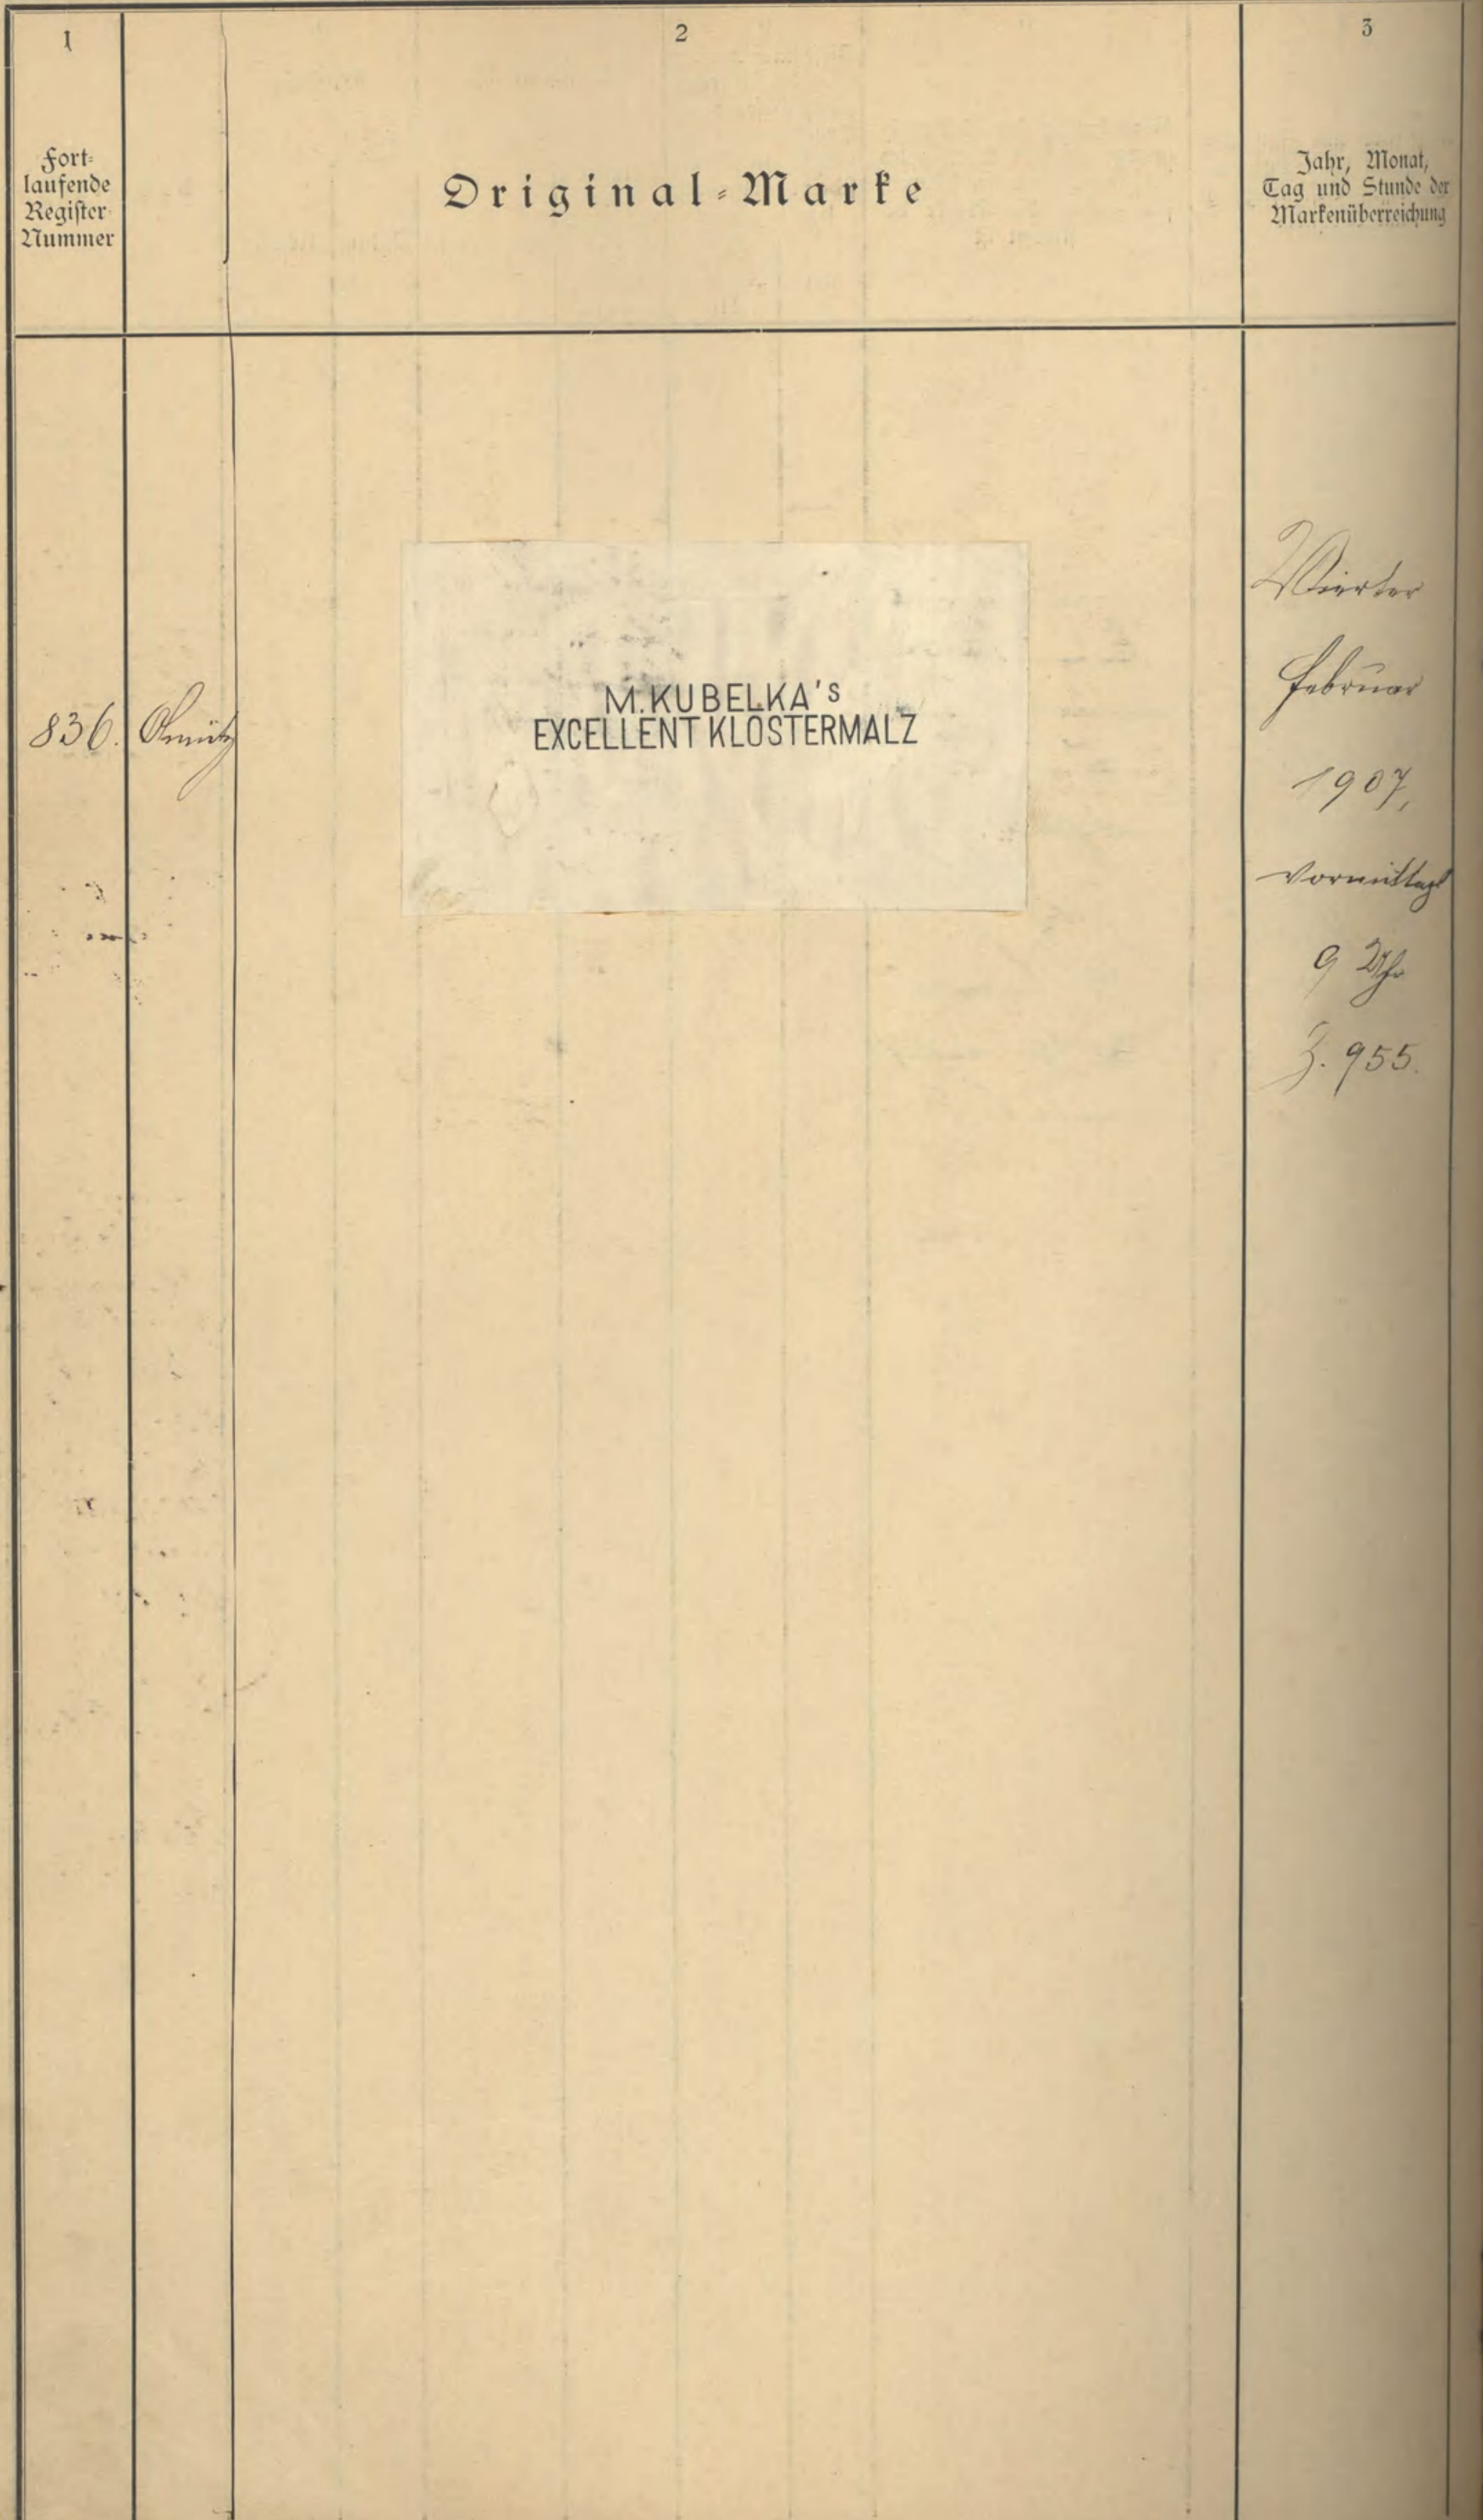 1
2
3
Fort-
laufende
Register
Nummer
Original-Marke
Jahr, Monat,
Tag und Stunde der
Markenüberreichung
836. Olmütz
M.KUBELKA's
EXCELLENT KLOSTERMALZ
Vierter
Februar
1907,
Vormittags
9 Uhr
Z. 955.